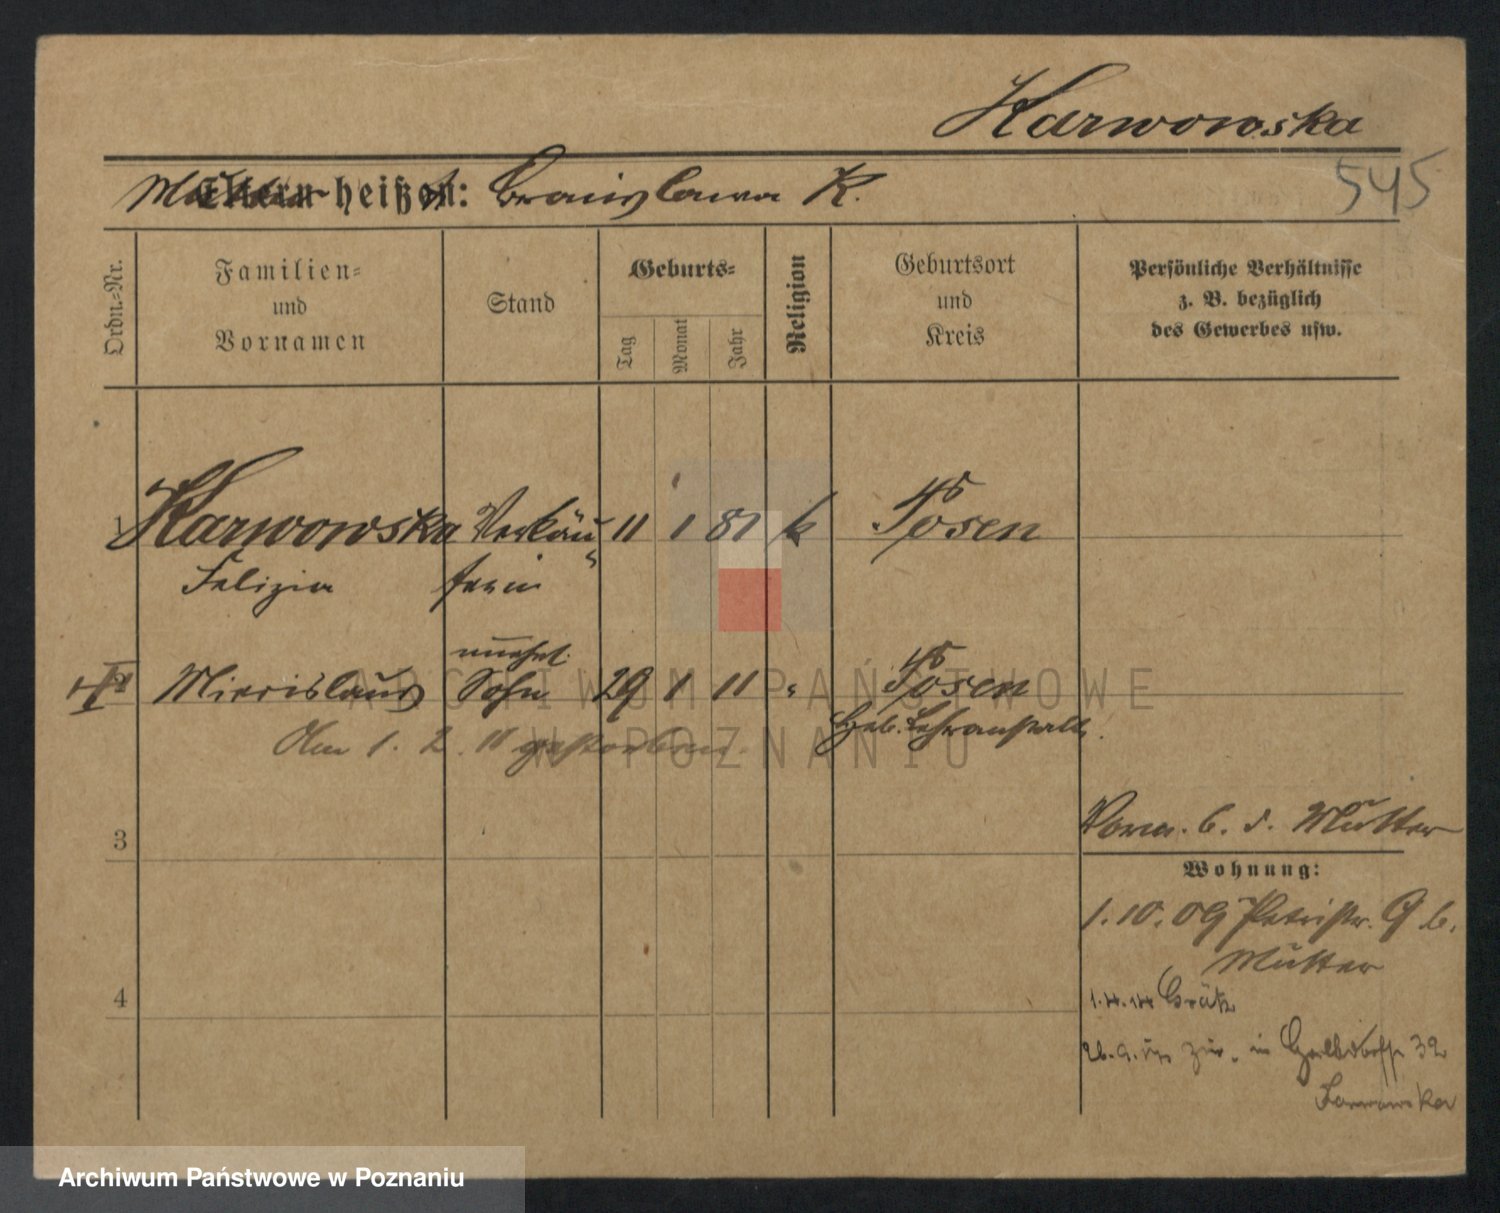 Karwowska
545
Eltern heißen: Bronislawa K.
Ordn.-Nr.
Familien-
und
Vornamen
Stand
Geburts-
Tag
Monat
Jahr
Religion
Geburtsort
und
Kreis
Persönliche Verhältnisse
z. B. bezüglich
des Gewerbes usw.
1 Karwowska Verkäu 11 1 87 k Posen
Felizia ferin
unehel.
Mierislaus Sohn 29 1 11 " Posen
Heb. Lehranstalt.
Am 1. 2. 11 gestorben.
3
Vorm. b. d. Mutter
Wohnung:
1.10.09 Petristr. 9 b.
Mutter
4
1.4.14 Grätz
zur. in 32
Karwowska
ARCHIWUM PAŃSTWOWE
W POZNANIU
Archiwum Państwowe w Poznaniu